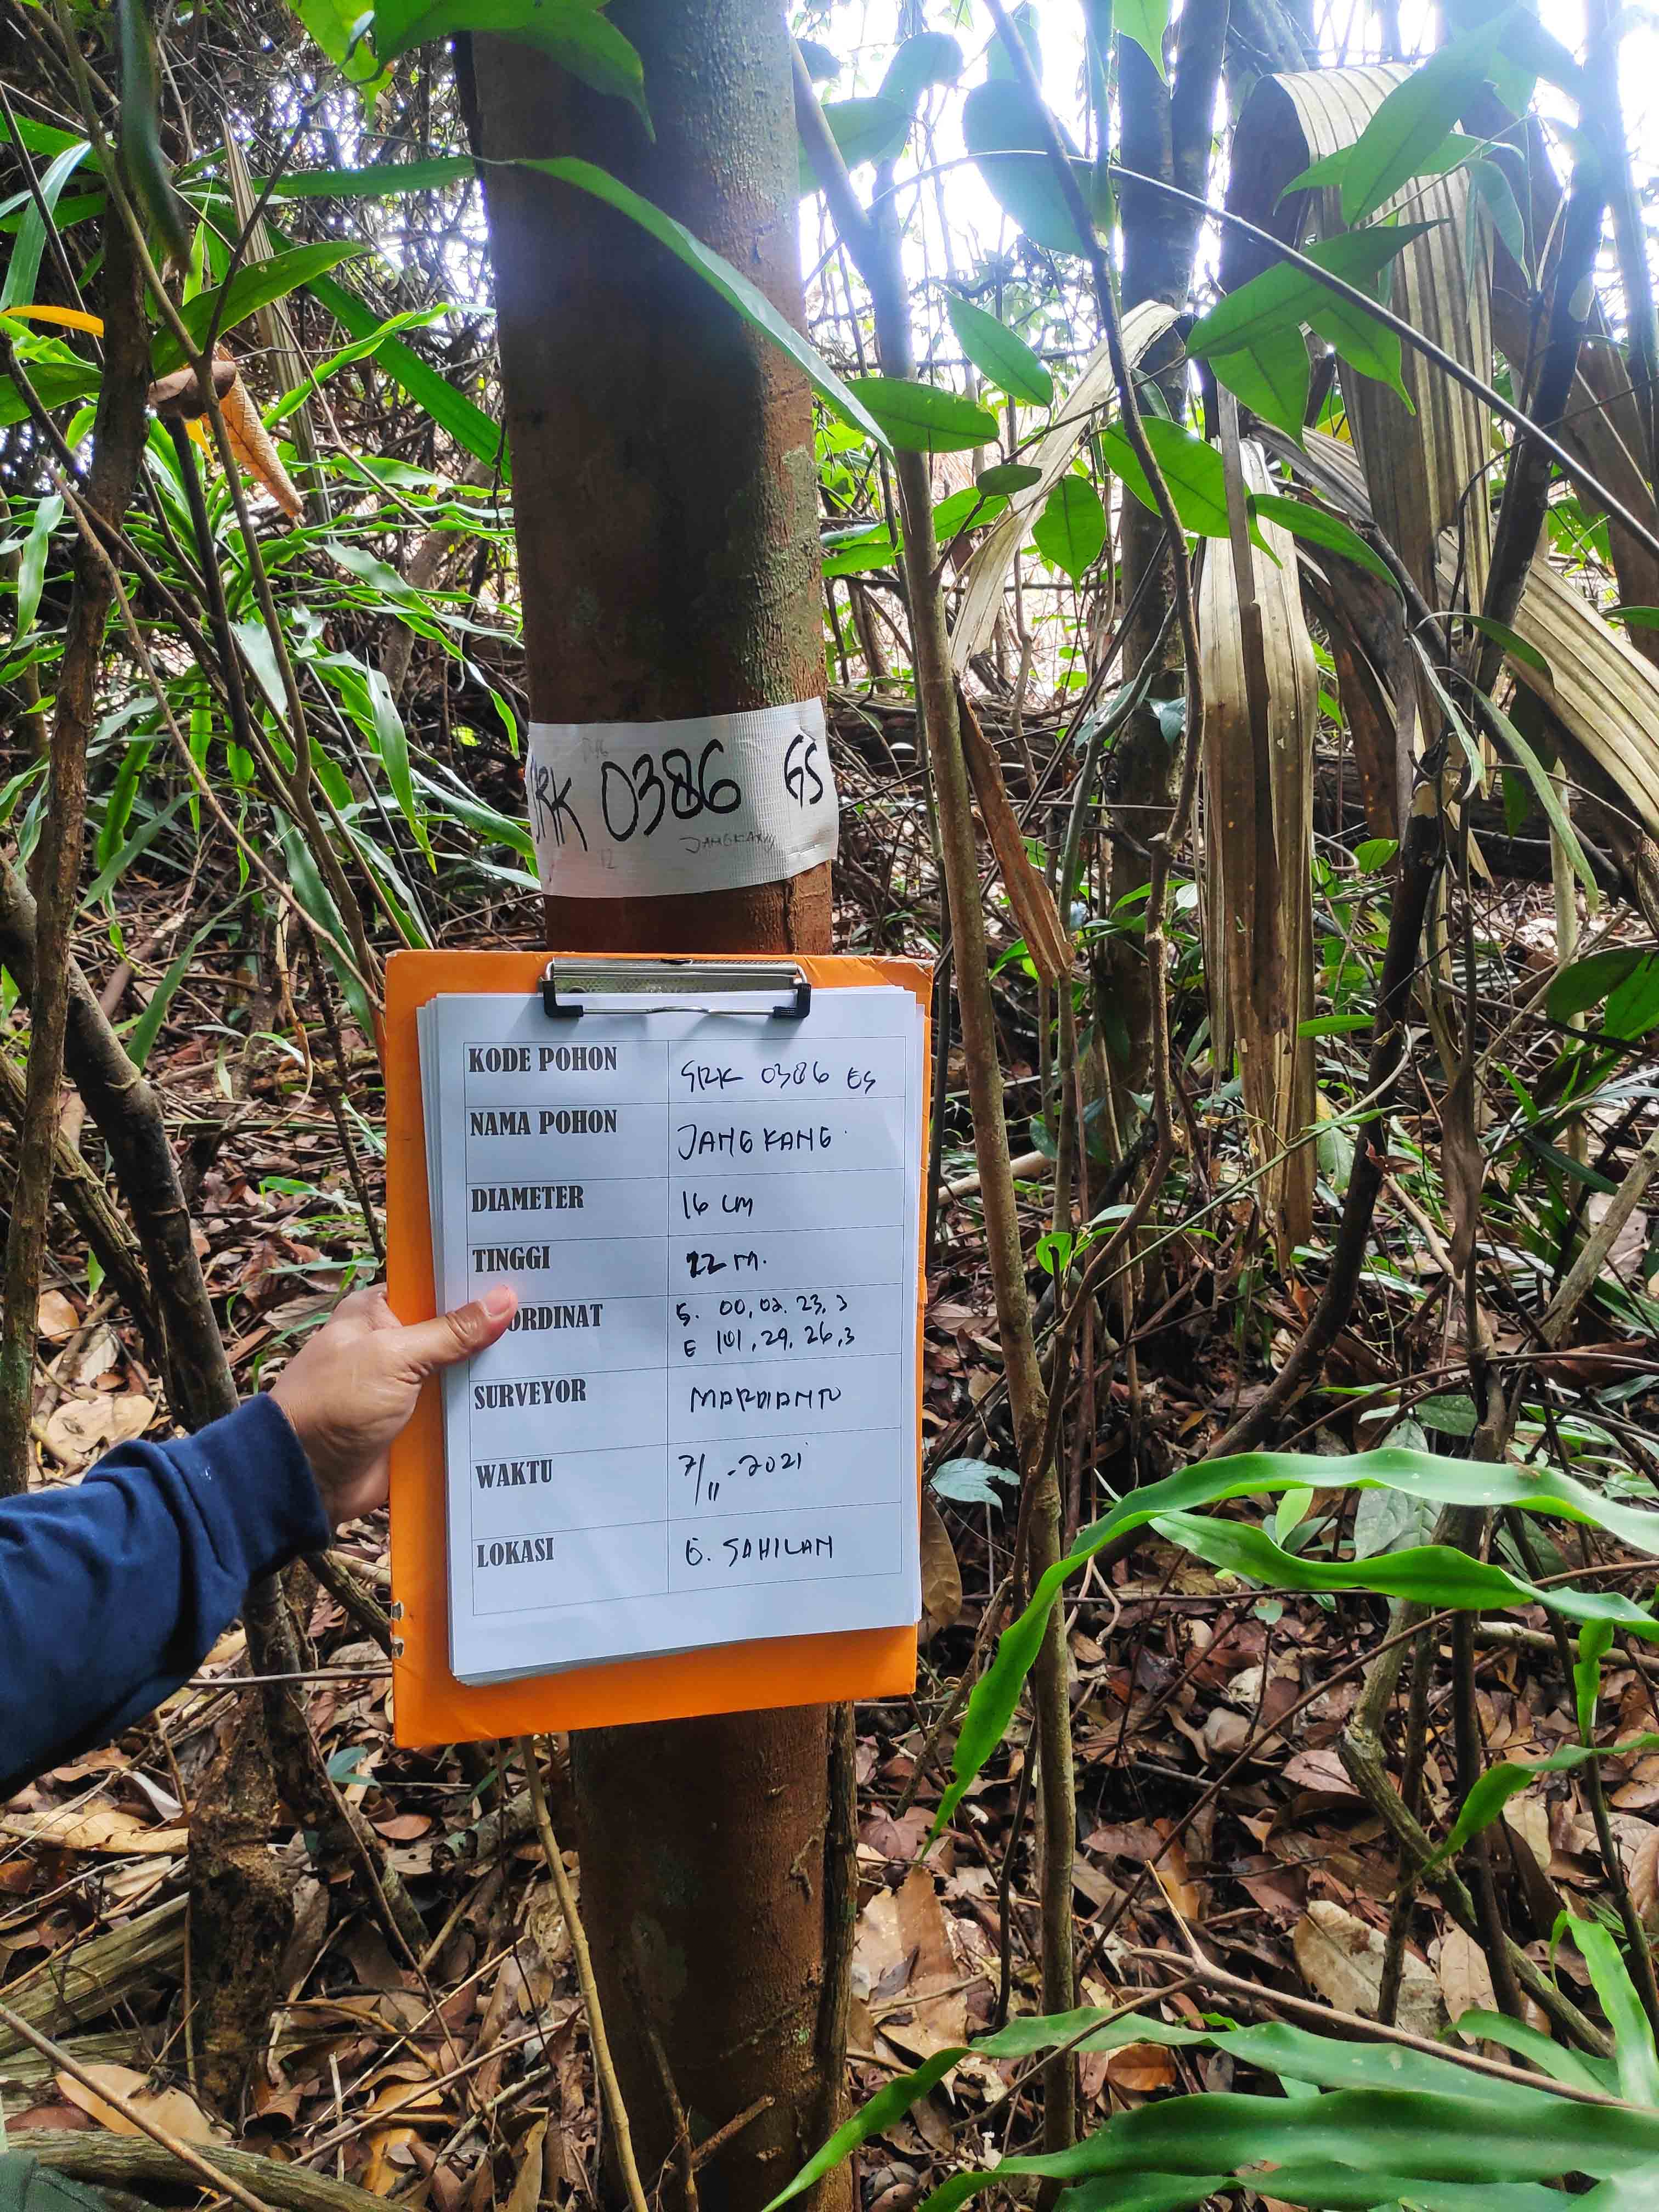 SRK 0386 GS
JANGKANG
12
KODE POHON SRK 0386 GS
NAMA POHON JANGKANG
DIAMETER 16 CM
TINGGI 22 M.
ORDINAT S. 00, 02. 23, 3
E 101, 29, 26, 3
SURVEYOR MARDIANTO
WAKTU 7/11-2021
LOKASI G. SAHILAN